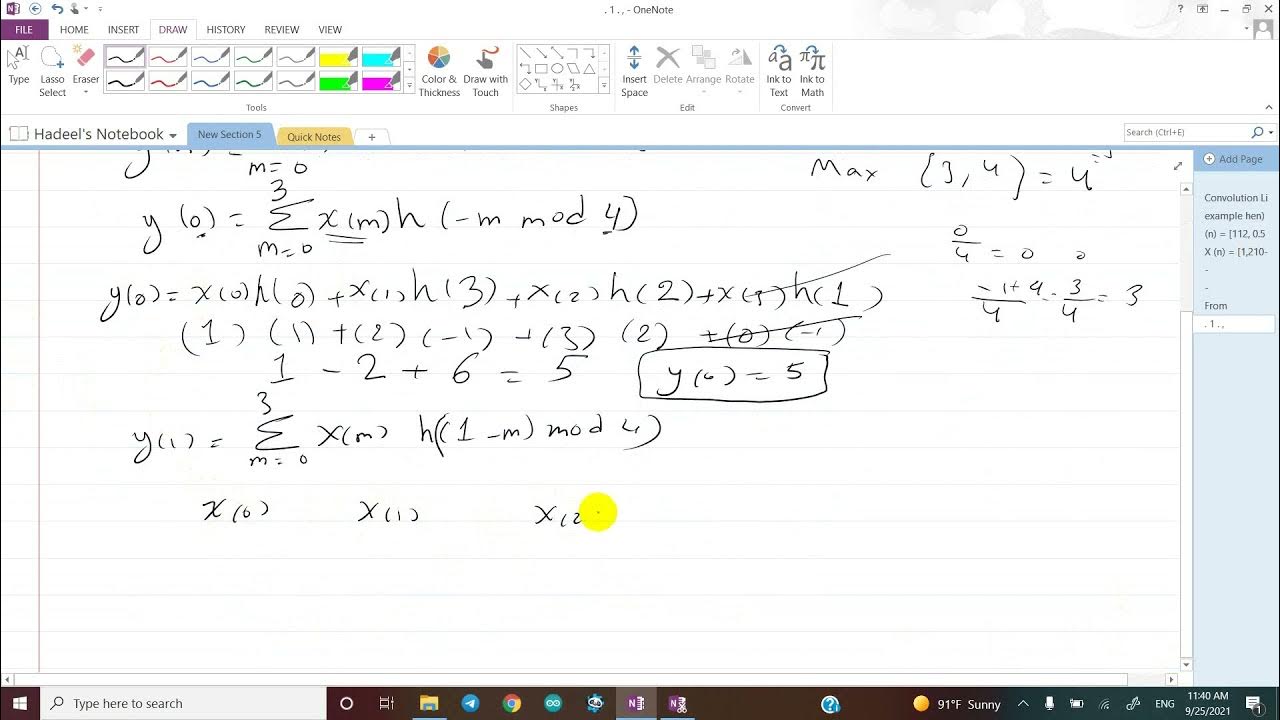 . 1 . , - OneNote
FILE HOME INSERT DRAW HISTORY REVIEW VIEW
Type Lasso Select Eraser Color & Thickness Draw with Touch Insert Space Delete Arrange Rotate Ink to Text Ink to Math
Tools Shapes Edit Convert
Hadeel's Notebook New Section 5 Quick Notes + Search (Ctrl+E)
Add Page
Convolution Li
example hen)
(n) = [112, 0.5
X (n) = [1,210-
-
-
From
. 1 . ,
m=0
Max (3, 4) = 4
3
y(0) = Σ x(m) h (-m mod 4)
m=0
0/4 = 0 0
y(0) = x(0)h(0) + x(1)h(3) + x(2)h(2) + x(3)h(1)
-1+4/4 = 3/4 = 3
(1) (1) + (2) (-1) + (3) (2) + (0) (-1)
1 - 2 + 6 = 5 y(0) = 5
3
y(1) = Σ x(m) h((1-m) mod 4)
m=0
x(0) x(1) x(2
Type here to search 91°F Sunny ENG 11:40 AM
9/25/2021